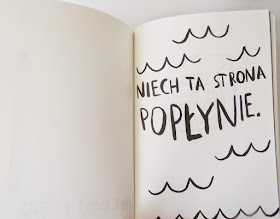 NIECH TA STRONA
POPŁYNIE.